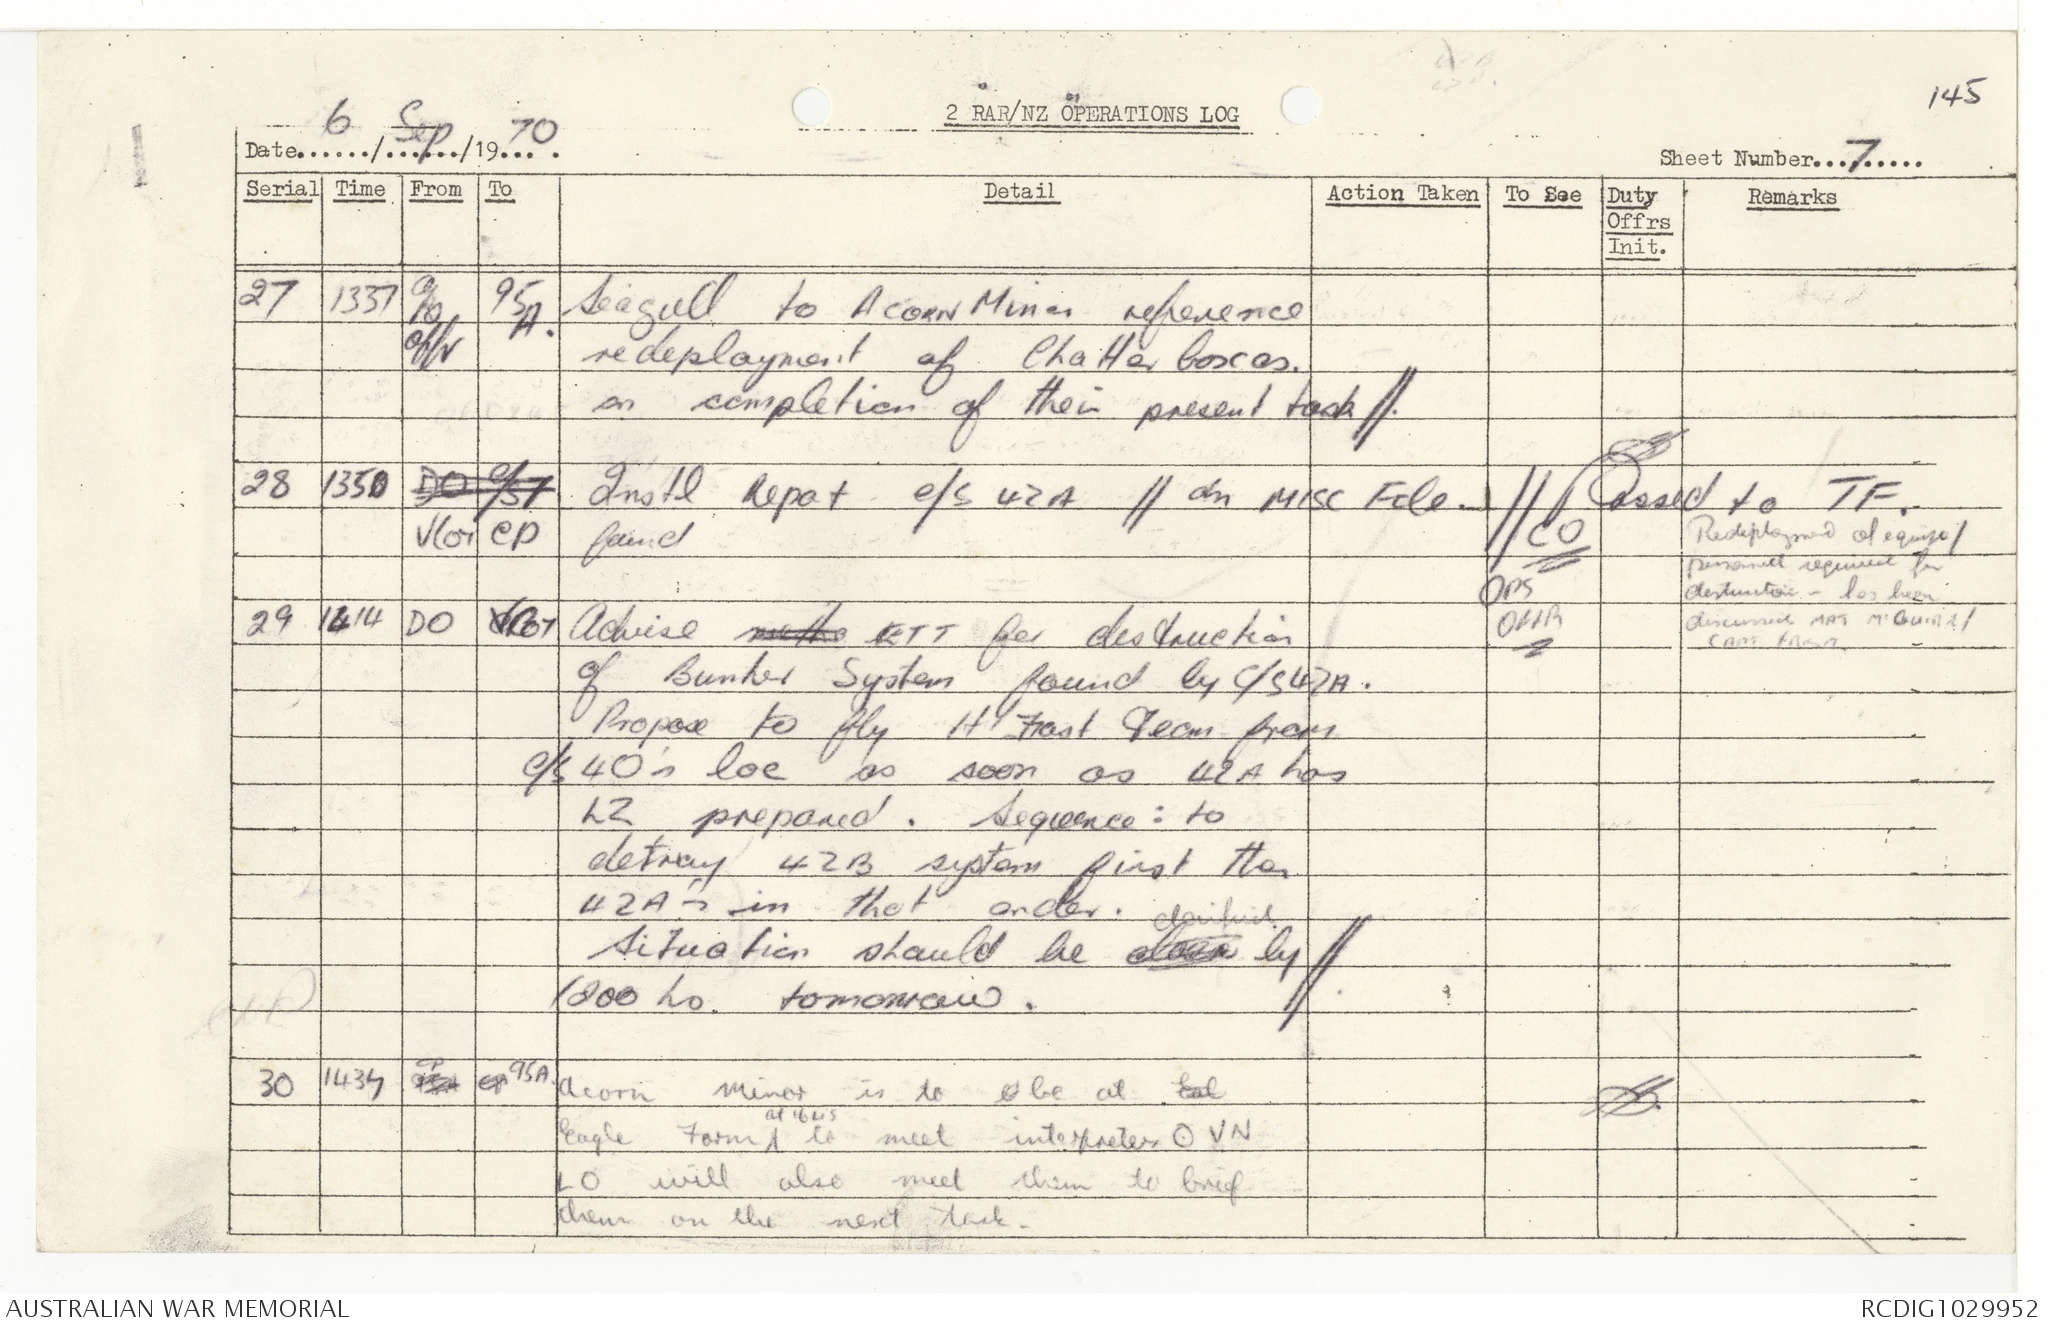 145
2 RAR/NZ OPERATIONS LOG
Date 6 / Sep / 19 70.
Sheet Number 7
Serial Time From To Detail Action Taken To See Duty Offrs Init. Remarks
27 1337 offr 95A. Seagull to Acorn Minor reference
redeployment of Chatter boxes.
on completion of their present task //.
28 1350 DO C/S 1 Instl Repot C/S 42A // In MISC File. // Passed to TF.
Victor CP found CO
Redeployment of equip/
personnel required for
destruction - has been
discussed MAJ McGUIRE/
CAPT
OPS
OFFR
29 1414 DO Advise ETT for destruction
of Bunker System found by C/S 42A.
Propose to fly 1st Team from
C/S 40's loc as soon as 42A has
LZ prepared. Sequence: to
detray 42B system first then
42A's in that order. clarified
Situation should be by //
1800 hs. tomorrow.
30 1437 CP 95A Acorn Minor is to be at
Eagle Farm at 1645 to meet interpreters VN
LO will also meet them to brief
them on the next task.
AUSTRALIAN WAR MEMORIAL
RCDIG1029952